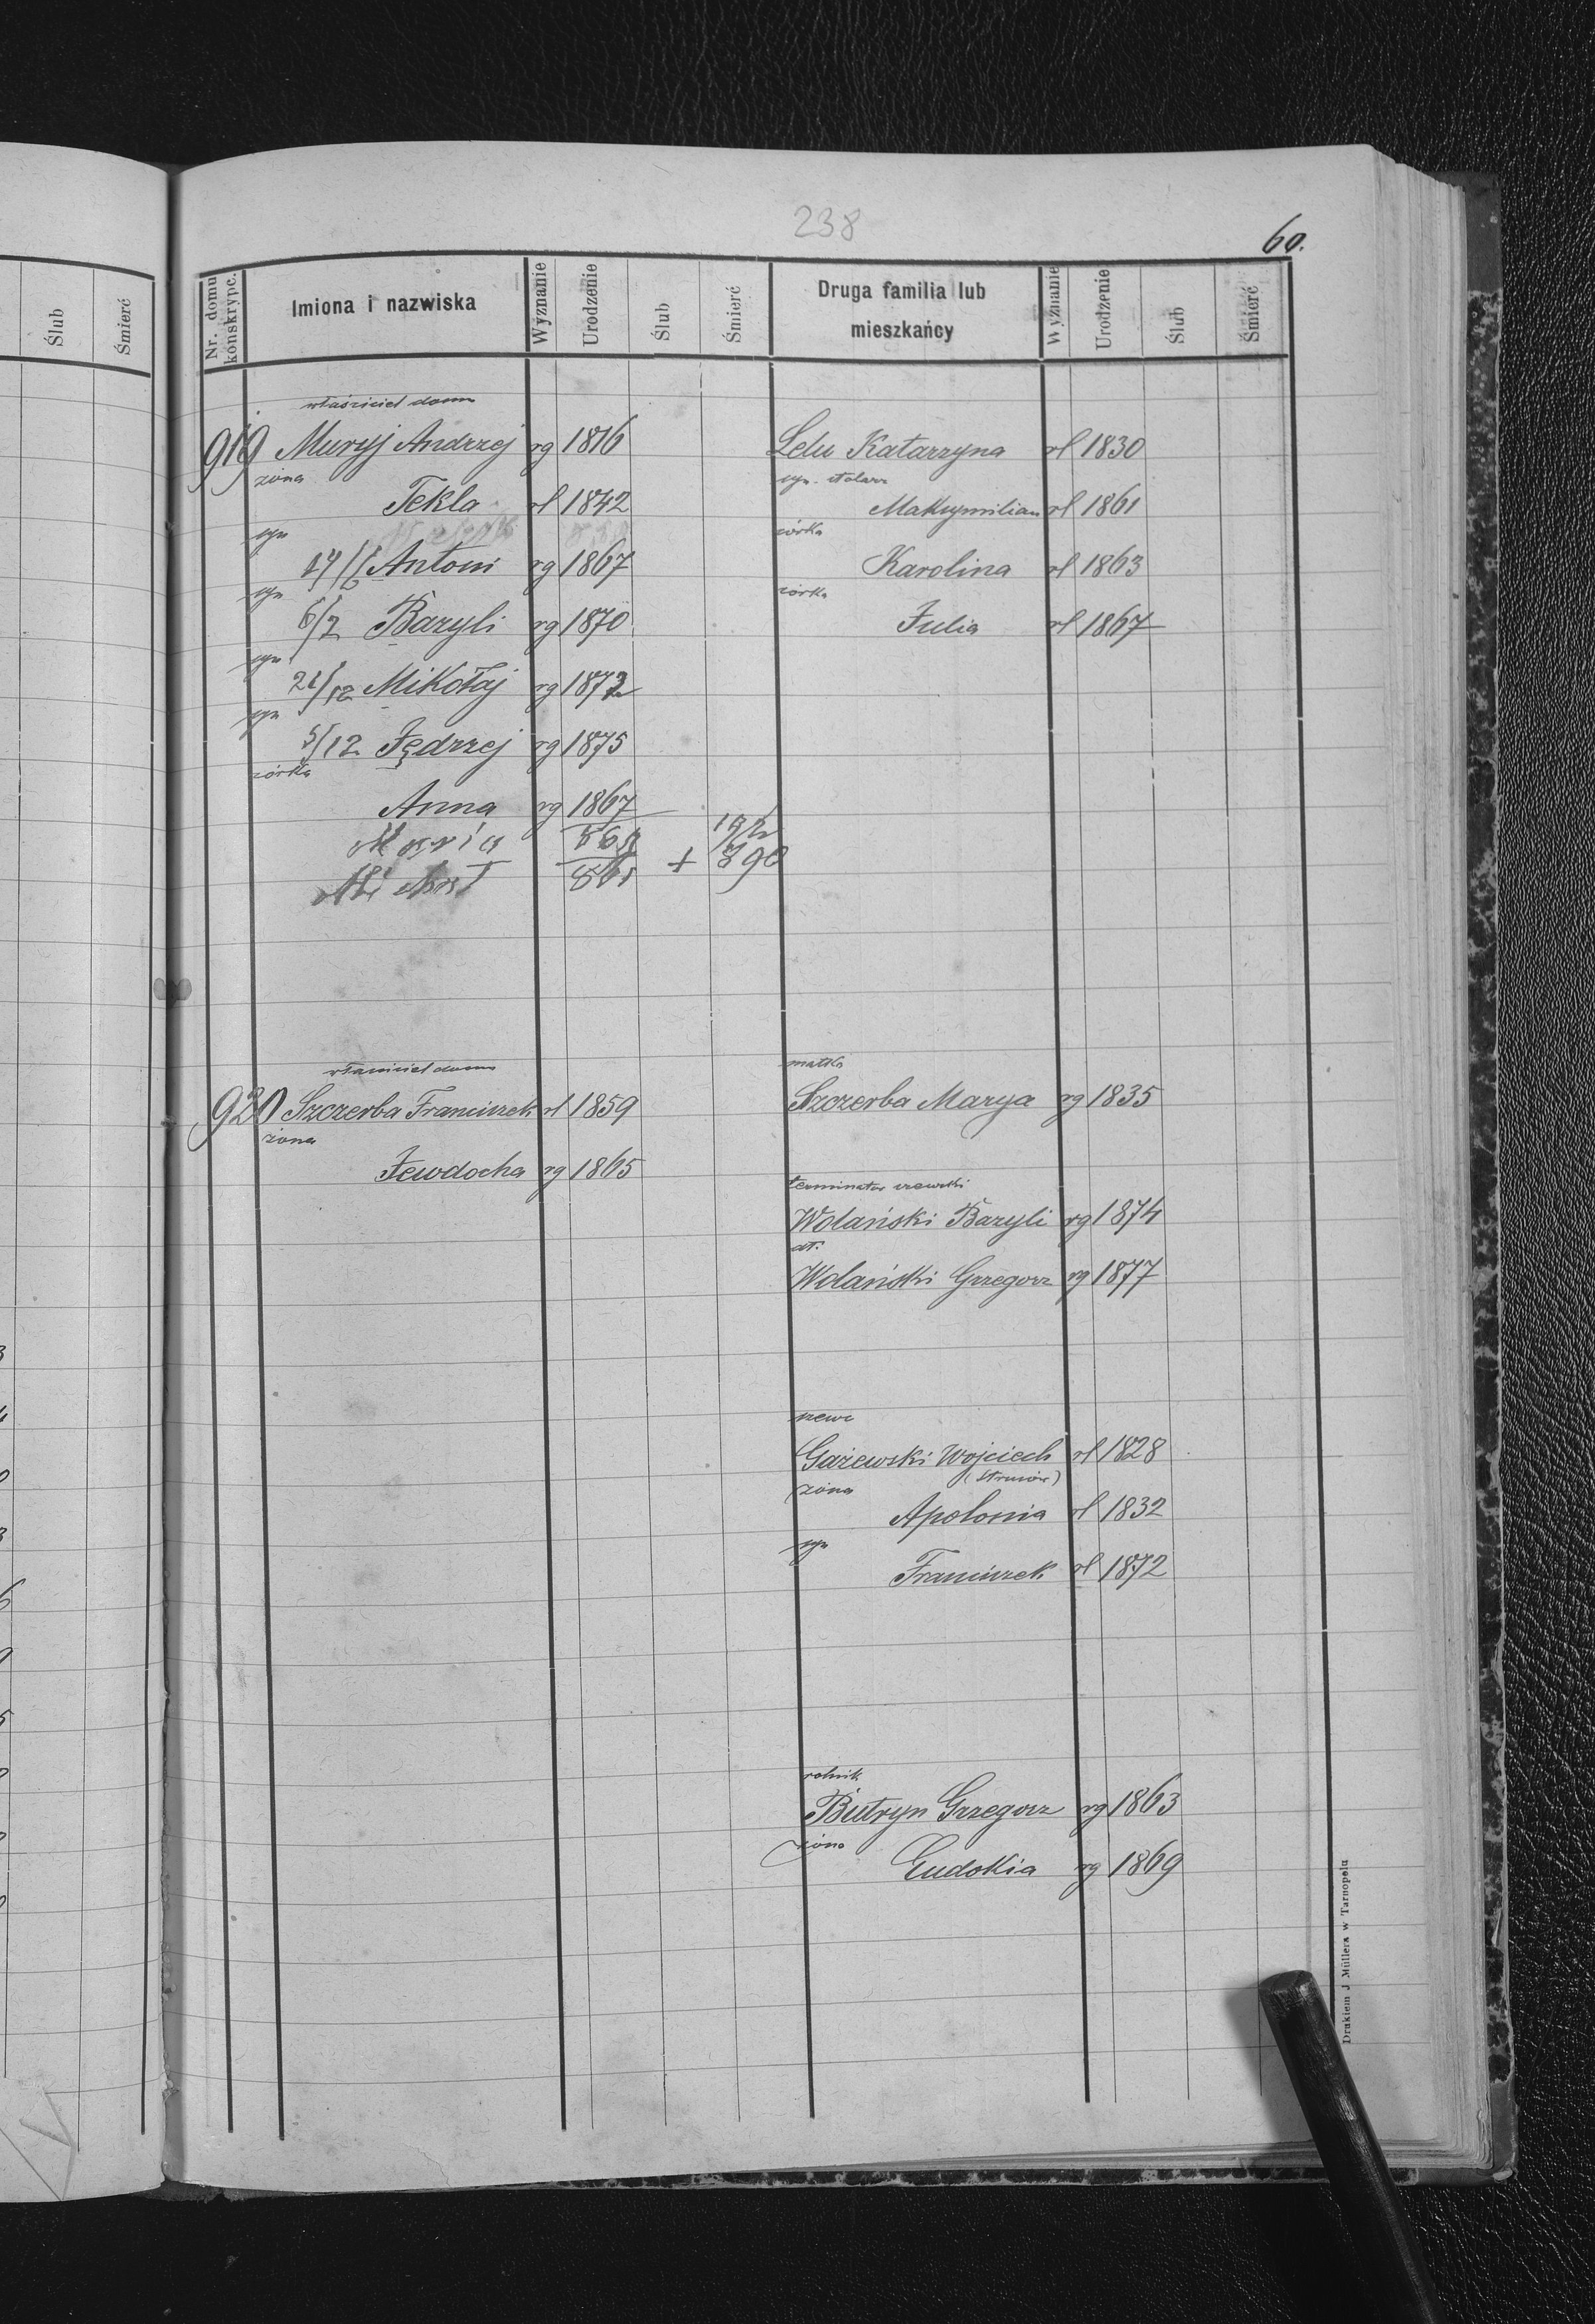 238
60.
Ślub
Śmierć
Nr. domu konskrypc.
Imiona i nazwiska
Wyznanie
Urodzenie
Ślub
Śmierć
Druga familia lub
mieszkańcy
Wyznanie
Urodzenie
Ślub
Śmierć
właściciel domu
919 Muryj Andrzej rg 1816
żona
Tekla rl 1842
syn
Antoni rg 1867
syn
6/2 Bazyli rg 1870
syn
21/12 Mikołaj rg 1872
syn
5/12 Jędrzej rg 1875
córka
Anna rg 1867
Maria
+ 890
Lelu Katarzyna rl 1830
syn. stolarz
Maksymilian rl 1861
córka
Karolina rl 1863
córka
Julia rl 1867
właściciel domu
920 Szczerba Franciszek rl 1859
żona
Jewdocha rg 1865
matka
Szczerba Marya rg 1835
terminator szewski
Wolański Bazyli rg 1874
dt.
Wolański Grzegorz rg 1877
szewc
Gażewski Wojciech rl 1828
(Strusów)
żona
Apolonia rl 1832
syn
Franciszek rl 1872
rolnik
Butryn Grzegorz rg 1863
żona
Eudokia rg 1869
Drukiem J Müllera w Tarnopolu